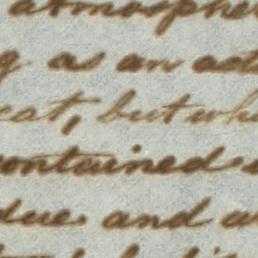 atmospher
g as an ad
eat, but wh
contained
due and a